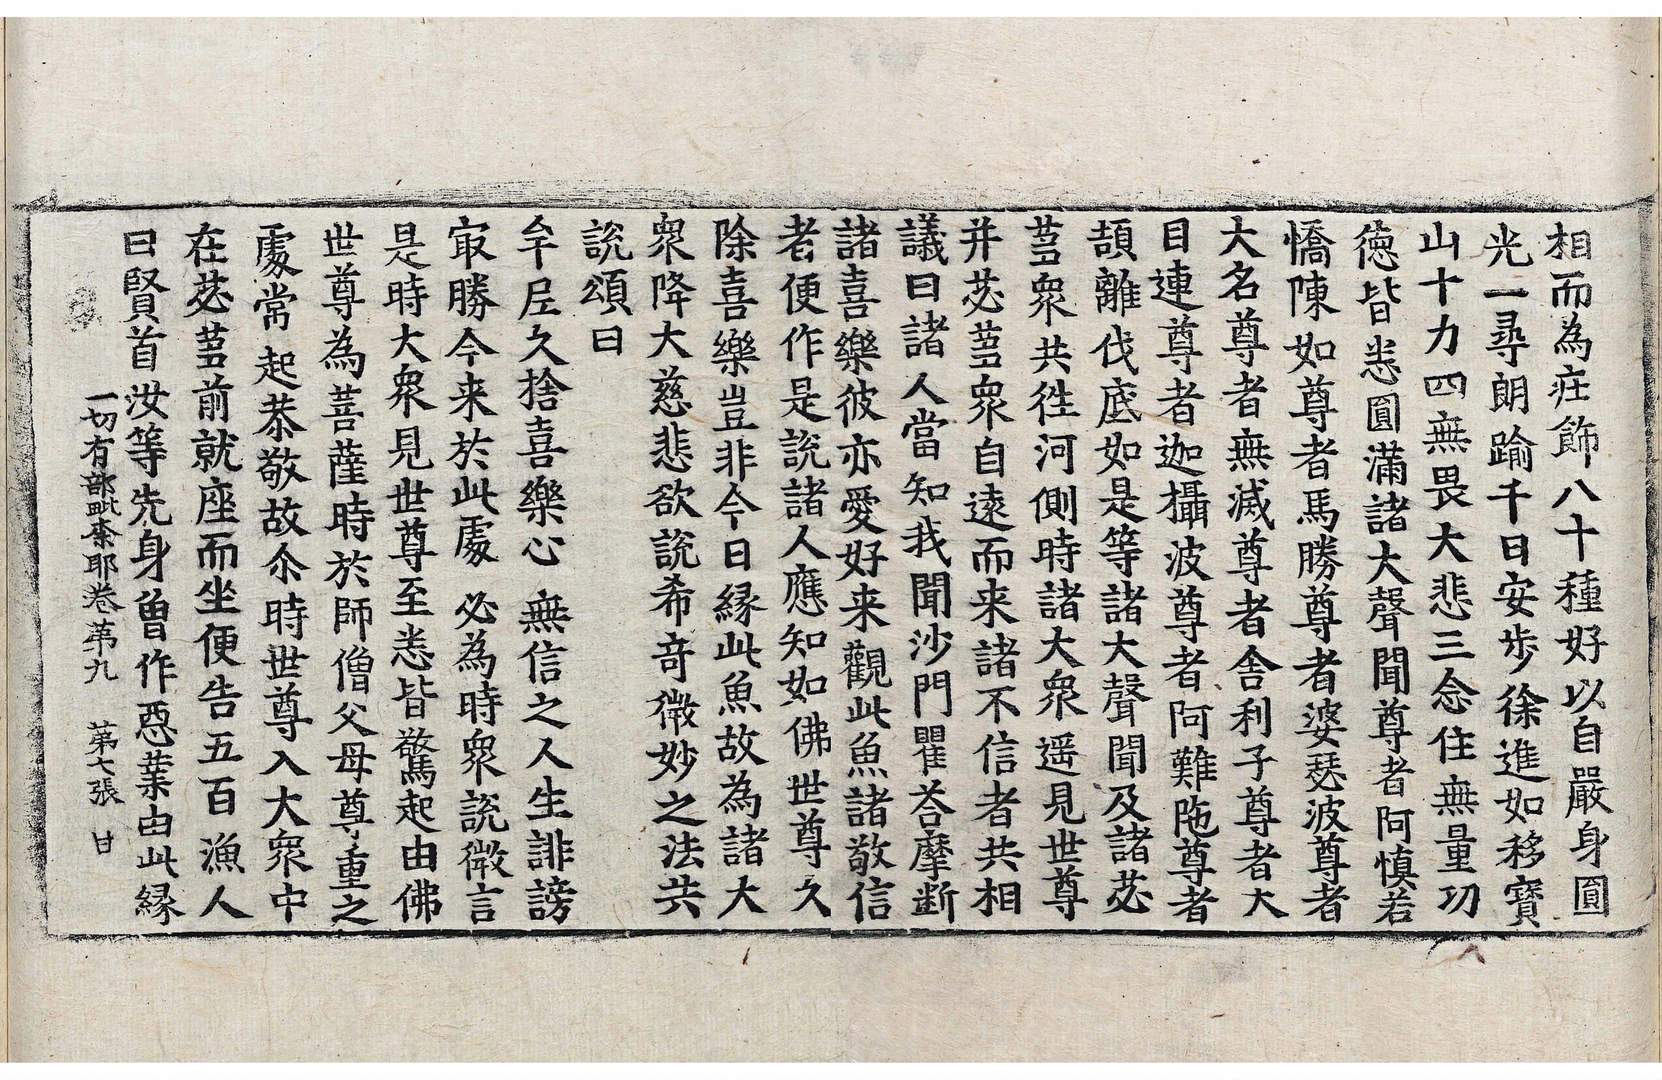 相而為莊飾八十種好以自嚴身圓
光一尋朗踰千日安步徐進如移寶
山十力四無畏大悲三念住無量功
德皆悉圓滿諸大聲聞尊者阿慎若
憍陳如尊者馬勝尊者婆瑟波尊者
大名尊者無滅尊者舍利子尊者大
目連尊者迦攝波尊者阿難陁尊者
頡離伐底如是等諸大聲聞及諸苾
芻衆共徃河側時諸大衆遥見世尊
并苾芻衆自遠而来諸不信者共相
議曰諸人當知我聞沙門瞿荅摩斷
諸喜樂彼亦愛好来觀此魚諸敬信
者便作是說諸人應知如佛世尊久
除喜樂豈非今日緣此魚故為諸大
衆降大慈悲欲說希竒微妙之法共
說頌曰
牟尼久捨喜樂心 無信之人生誹謗
㝡勝今来於此處 必為時衆說微言
是時大衆見世尊至悉皆驚起由佛
世尊為菩薩時於師僧父母尊重之
處常起恭敬故尒時世尊入大衆中
在苾芻前就座而坐便告五百漁人
曰賢首汝等先身曾作惡業由此緣
一切有部毗柰耶卷第九 第七張 甘